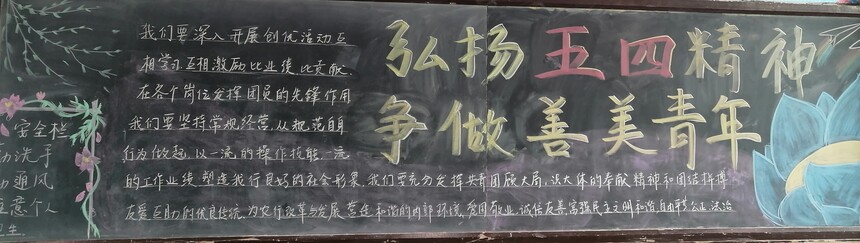 弘扬五四精神
争做善美青年
我们要深入开展创优活动互
相学习互相激励比业绩比贡献.
在各个岗位发挥团员的先锋作用
我们要坚持常规经营.从规范自身
行为做起.以一流的操作技能.一流
的工作业绩.塑造我行良好的社会形象.我们要充分发挥共青团顾大局.识大体的奉献精神和团结拼搏
友爱互助的优良传统.为农行改革与发展.营造和谐的内部环境.爱国敬业.诚信友善.富强民主文明和谐.自由平等公正法治
安全栏
洗手
通风
注意个人
卫生